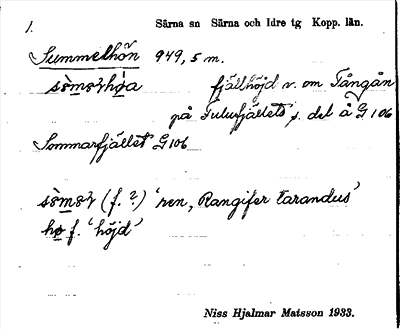 1. Särna sn Särna och Idre tg Kopp. län.
Summelhön 949,5 m.
fjällhöjd v. om Tångån
på Fulufjällets s. del å G 106
Sommarfjället G 106
(f. ?) 'ren, Rangifer tarandus'
f. 'höjd'
Niss Hjalmar Matsson 1933.